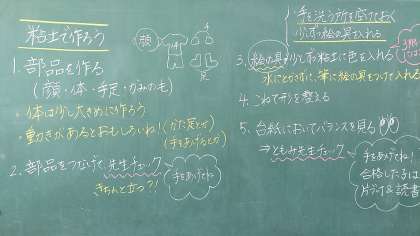 粘土で作ろう
顔
手
足
1. 部品を作る
(顔・体・手足・かみのも)
・体は少し大きめに作ろう
・動きがあるとおもしろいね!
(手をあげるとか)
2. 部品をつなげて、先生チェック
きちんと立つ?!
手をあげてね
手を洗う所を空けておく
少しずつ絵の具を入れる
3. 絵の具を少しずつ粘土に色を入れる
水にとかさずに、筆に絵の具をつけて入れる
4. こねて形を整える
5. 台紙においてバランスを見る
⇒ともみ先生チェック
手をあげてね!
合格した子は
片づけ&読書